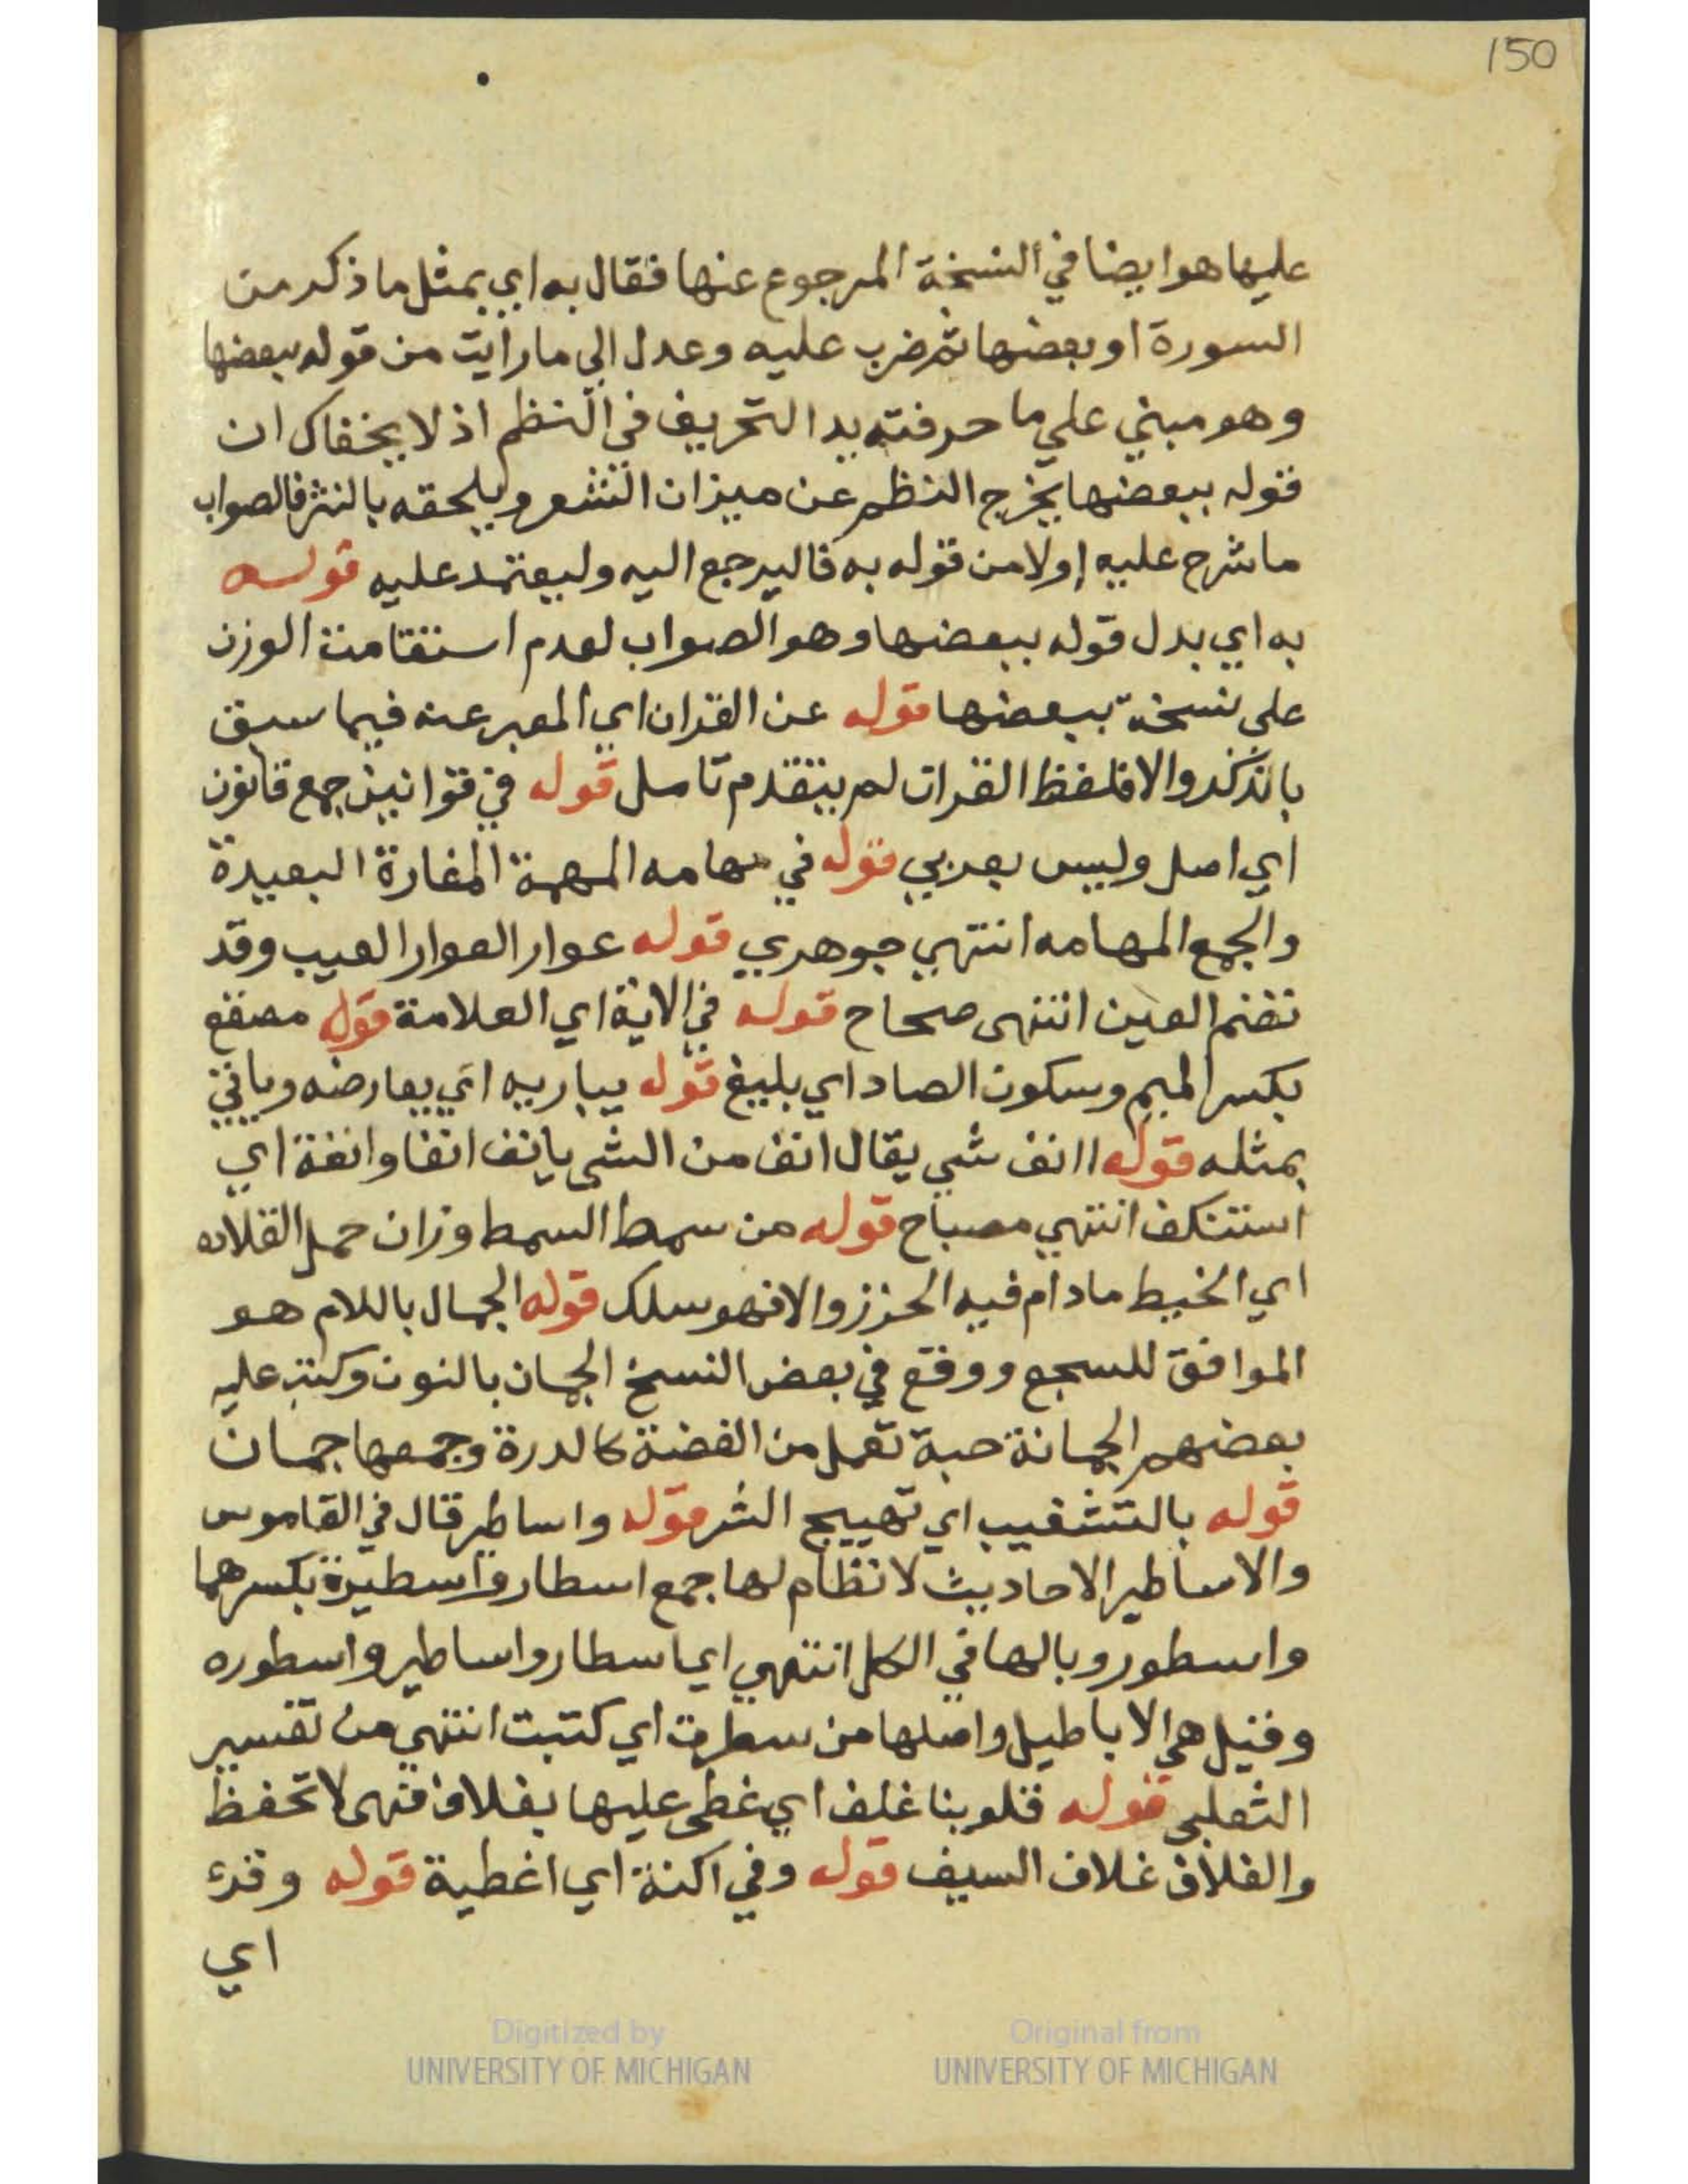 150
عليها هو ايضا في النسخة المرجوع عنها فقال به اي بمثل ما ذكر من
السورة او بعضها ثم ضرب عليه وعدل الي ما رايت من قوله ببعضها
وهو مبني علي ما حرفته يد التحريف في النظم اذ لا يخفاك ان
قوله ببعضها يخرج النظم عن ميزان الشعر ويلحقه بالنثر فالصواب
ما شرح عليه اولا من قوله به فاليرجع اليه وليعتمد عليه قوله
به اي بدل قوله ببعضها وهو الصواب لعدم استقامت الوزن
على نسخة ببعضها قوله عن القران اي المعبر عنه فيما سبق
بالذكر والا فلفظ القران لم يتقدم تامل قوله في قوانين جمع قانون
اي اصل وليس بعربي قوله في مهامه المهمة المفازة البعيدة
والجمع المهامه انتهي جوهري قوله عوار العوار العيب وقد
تضم العين انتهى صحاح قوله في الاية اي العلامة قوله مصقع
بكسر الميم وسكون الصاد اي بليغ قوله يباريه اي يعارضه وياتي
بمثله قوله اانف شي يقال انف من الشي يانف انفا وانفة اي
استنكف انتهي مصباح قوله من سمط السمط وزان حمل القلاده
اي الخيط مادام فيه الخرز والا فهو سلك قوله الجمال باللام هو
الموافق للسجع ووقع في بعض النسخ الجمان بالنون وكتب عليه
بعضهم الجمانة حبة تعمل من الفضة كالدرة وجمعها جمان
قوله بالتشغيب اي تهييج الشر قوله واساطير قال في القاموس
والاساطير الاحاديث لا نظام لها جمع اسطار واسطيرة بكسرهما
واسطور وبالها في الكل انتهي اي اسطار واساطير واسطوره
وقيل هي الاباطيل واصلها من سطرت اي كتبت انتهي من تفسير
الثعلبي قوله قلوبنا غلف اي غطي عليها بغلاف فهي لا تحفظ
والغلاف غلاف السيف قوله وفي اكنة اي اغطية قوله وقرء
اي
Digitized by
UNIVERSITY OF MICHIGAN
Original from
UNIVERSITY OF MICHIGAN